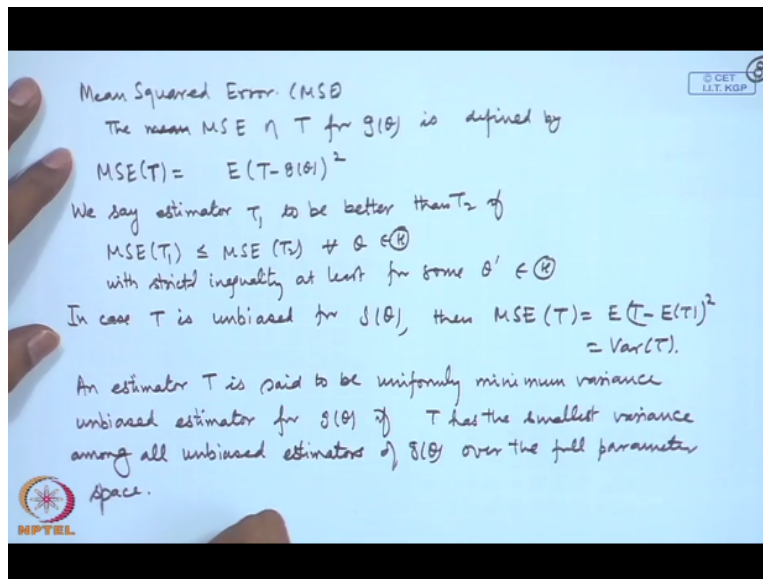 Mean Squared Error. (MSE)
© CET
I.I.T. KGP
8
The mean MSE of T for g(θ) is defined by
MSE(T) = E(T-g(θ))²
We say estimator T₁ to be better than T₂ if
MSE(T₁) ≤ MSE(T₂) ∀ θ ∈ Ⓗ
with strict inequality at least for some θ' ∈ Ⓗ
In case T is unbiased for g(θ), then MSE(T) = E(T-E(T))²
= Var(T).
An estimator T is said to be uniformly minimum variance
unbiased estimator for g(θ) if T has the smallest variance
among all unbiased estimators of g(θ) over the full parameter
space.
NPTEL